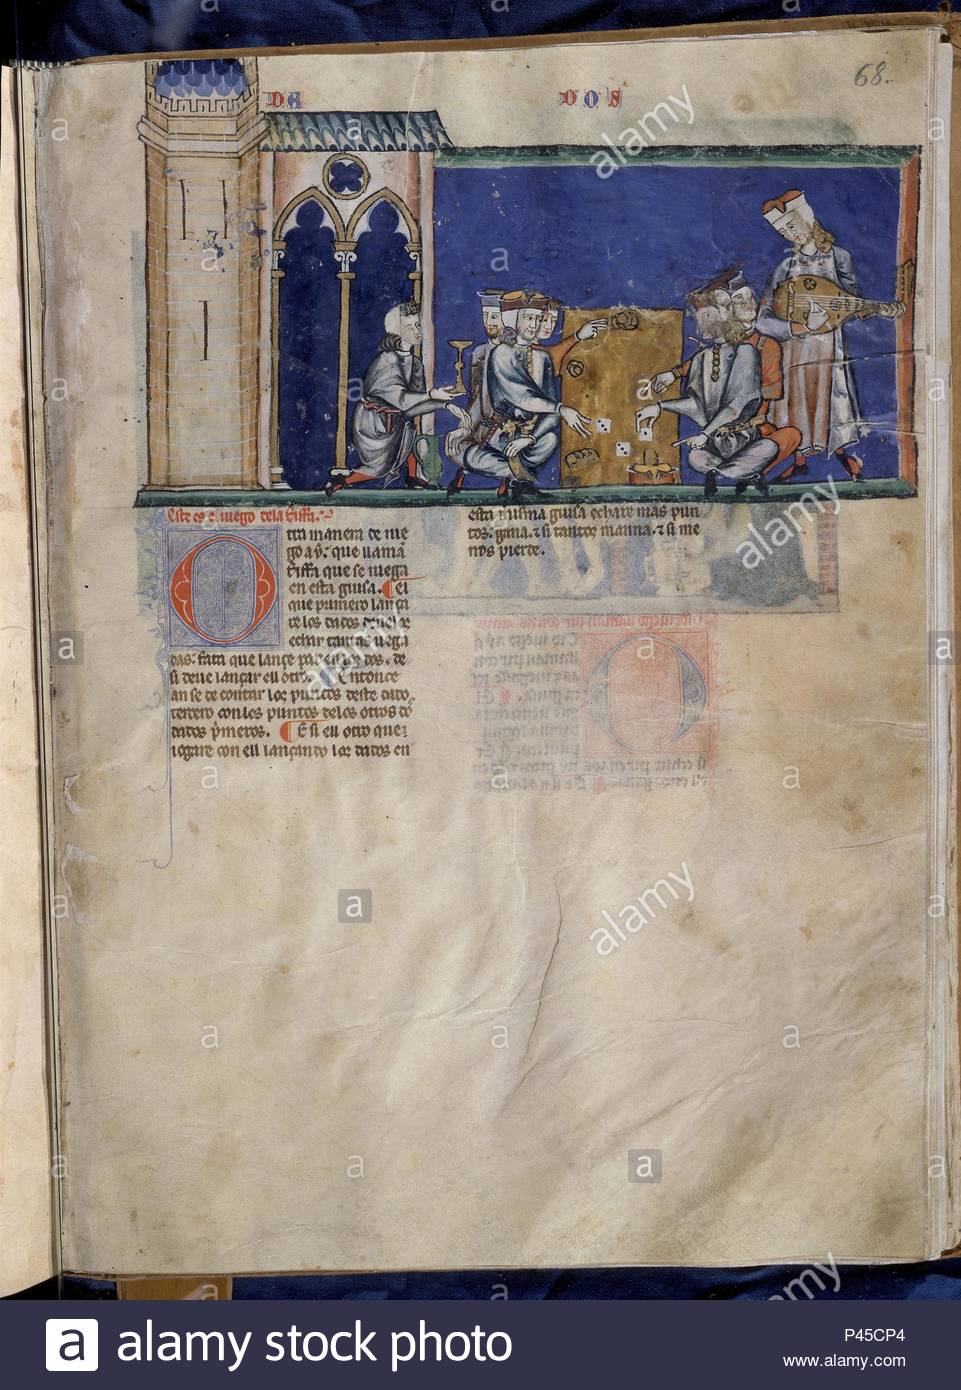 68.
DE DOS
Este es el iuego dela triffa.
Otra manera de iue
go a y. que llamã
triffa que se iuega
en esta guisa. El
que primero lança
re los dados deue
echar tantas uega
das: fata que lançe par en los dos. de
si deue lançar ell otro. Entonce
an se de contar los puntos deste dado
tercero con los puntos de los otros dos
dados primeros. E si ell otro que
iogare con ell lançando los dados en
esta misma guisa echare mas pun
tos: gana. & si tantos: manna. & si me
nos pierde.
alamy
alamy
alamy
alamy
alamy
a alamy stock photo
P45CP4
www.alamy.com